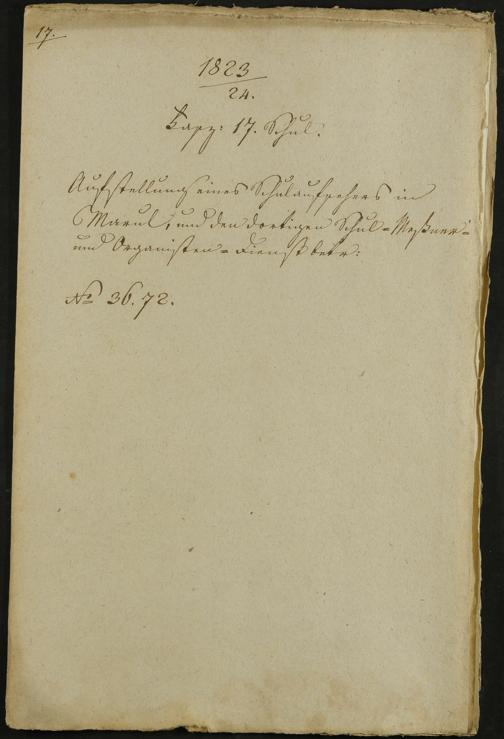 17.
1823
24.
Fasz: 17. Schul.
Aufstellung eines Schulaufsehers in
Marul, und den dortigen Schul-Meßner-
und Organisten-Dienst betr:
No 36. 72.